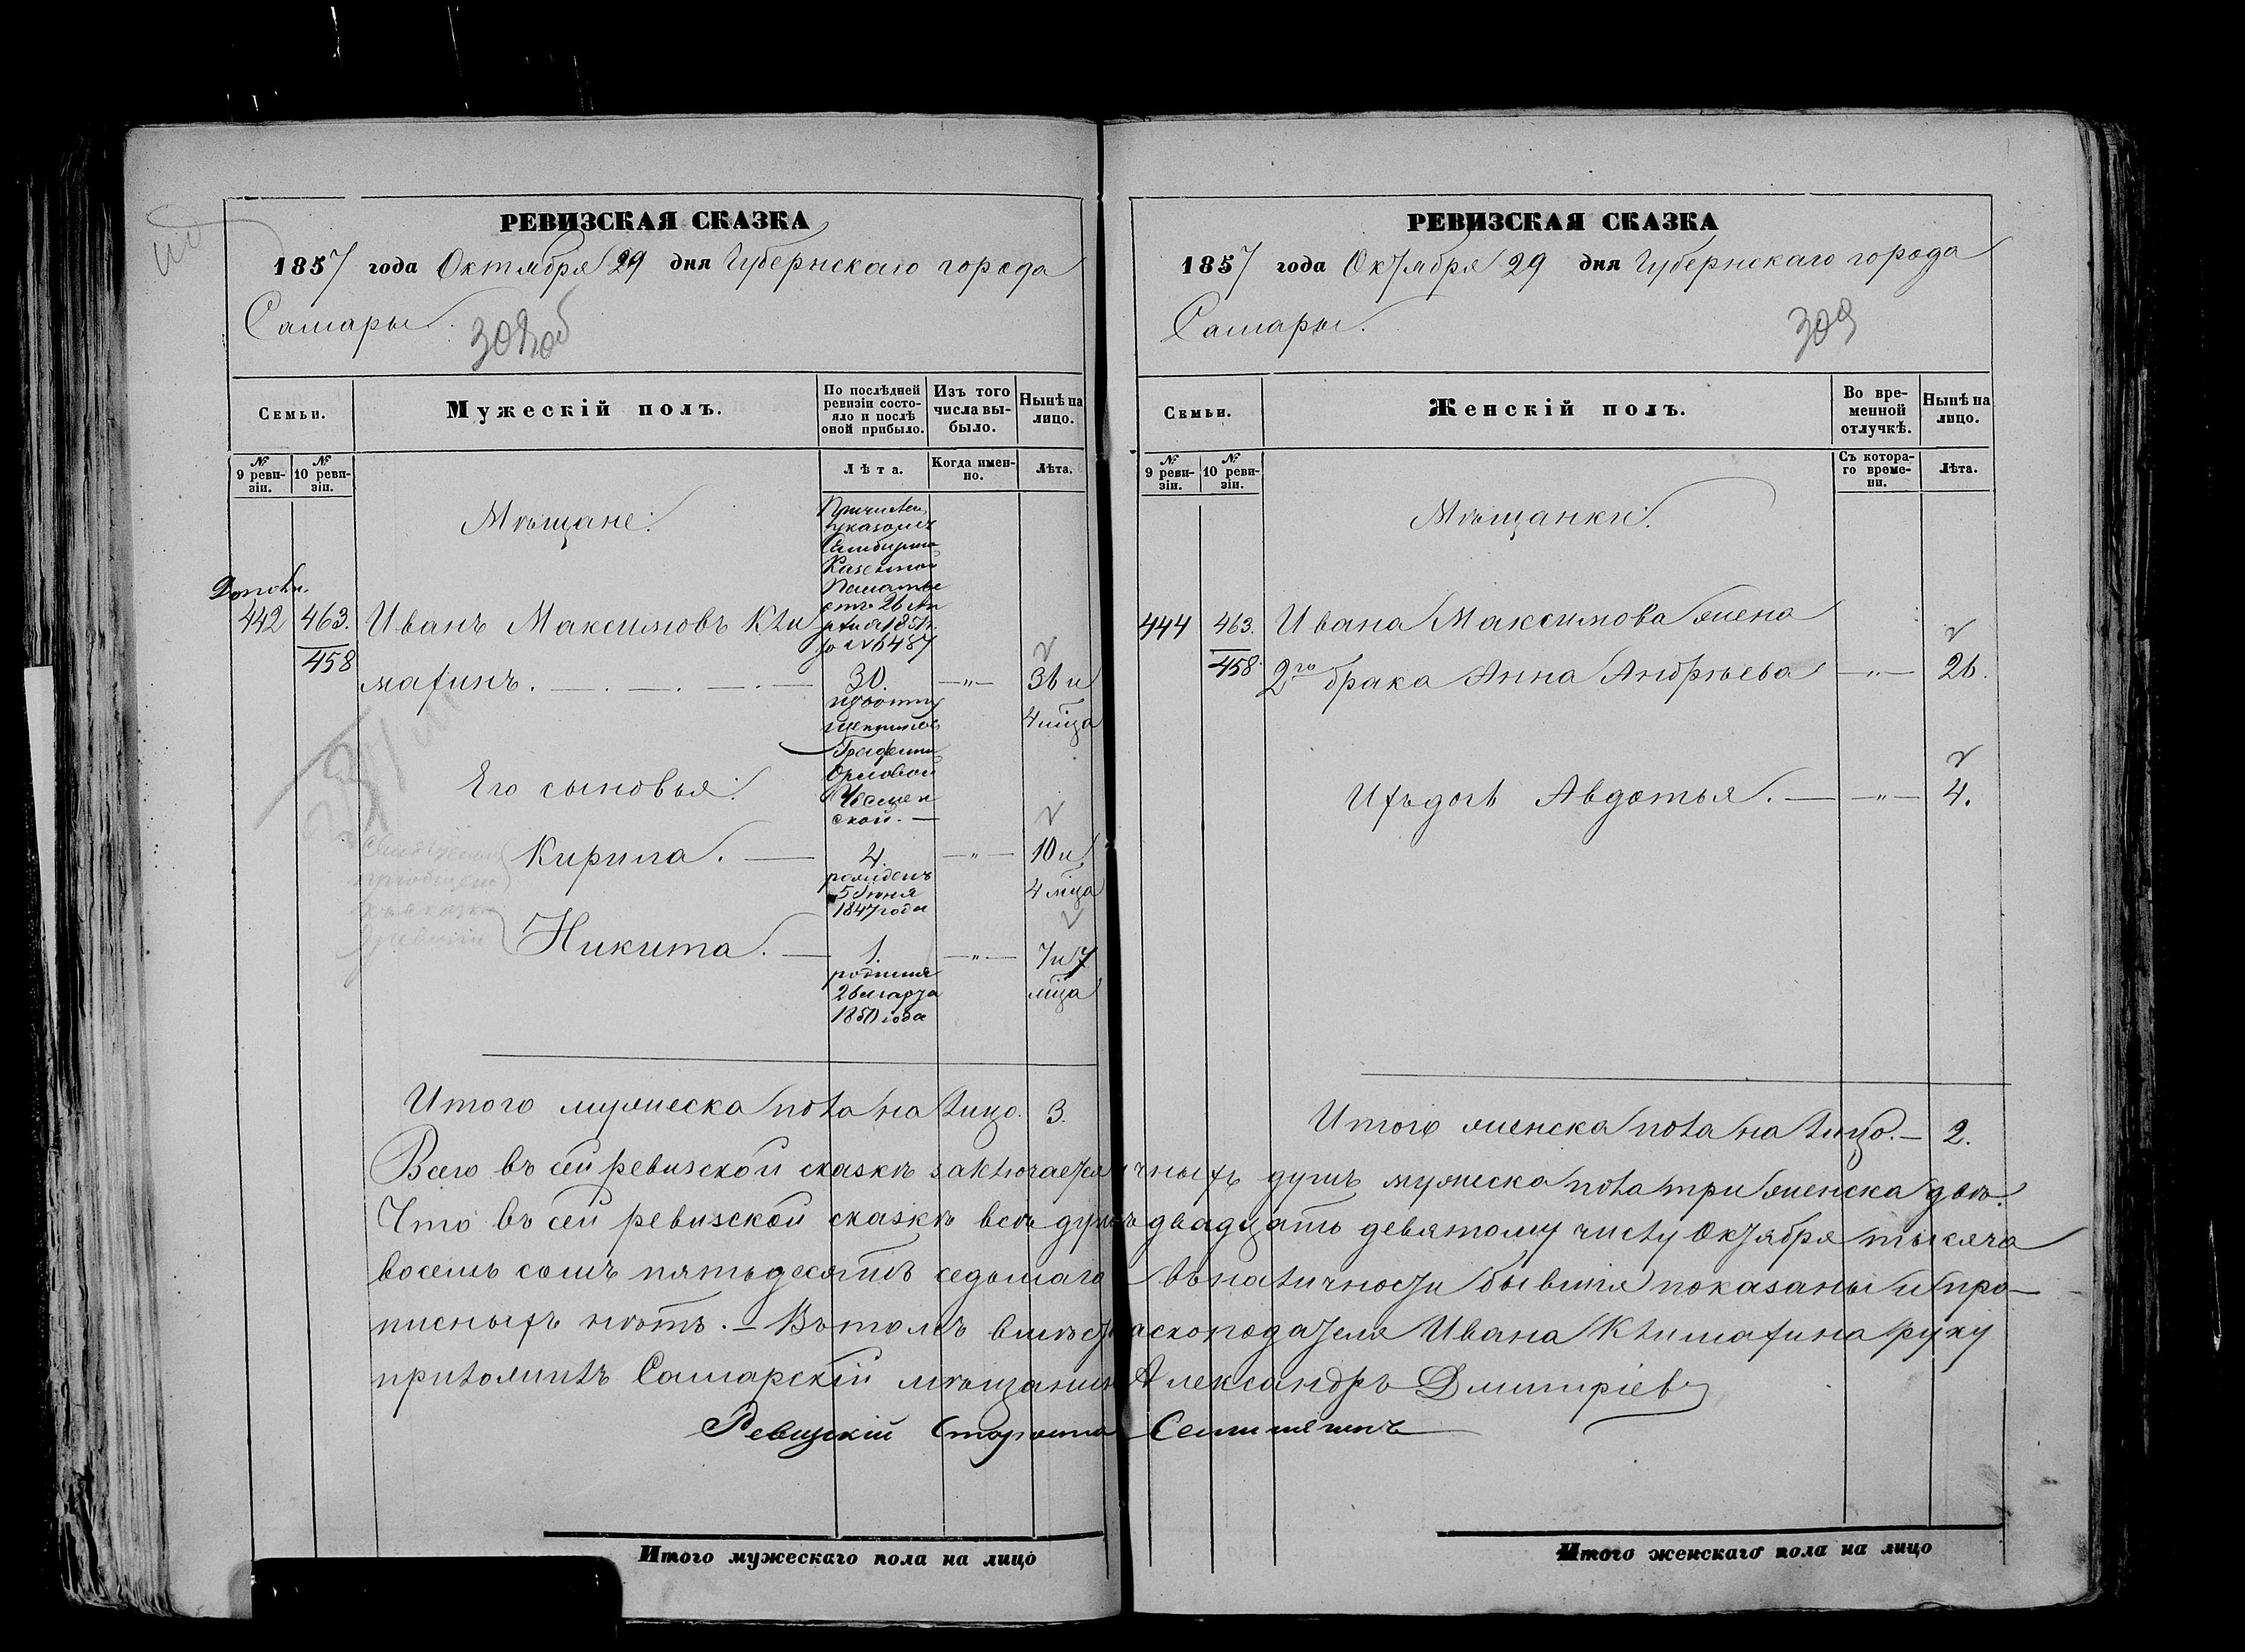 РЕВИЗСКАЯ СКАЗКА
1857 года Октября 29 дня Губернскаго города
Самары.
Семьи.
Мужескій полъ.
По послѣдней ревизіи состояло и послѣ оной прибыло.
Изъ того числа выбыло.
Нынѣ на лицо.
№ 9 ревизіи.
№ 10 ревизіи.
Лѣта.
Когда именно.
Лѣта.
Мѣщане:
Причислен
указомъ
Симбирс
Казенной
Палаты
отъ 26 Ап
рѣля 1851 г.
за № 6487
Дополн.
442 463. Иванъ Максимовъ Кли
458
махинъ. 30. —"— 36 и
4 мѣца
Графини
Орловой
Чесмен
ской. —
Его сыновья:
Кирила. — 4. —"— 10 и
рожденъ
5 Июня
1847 года
4 мѣца
Никита. — 1. —"— 7 и 7
мѣца
родился
26 марта
1850 года
Итого мужеска пола на лицо. 3.
РЕВИЗСКАЯ СКАЗКА
1857 года Октября 29 дня Губернскаго города
Самары.
309
Семьи.
Женскій полъ.
Во временной отлучкѣ.
Нынѣ на лицо.
№ 9 ревизіи.
№ 10 ревизіи.
Съ котораго времени.
Лѣта.
Мѣщанки:
444 463. Ивана Максимова жена
458. 2го брака Анна Андрѣева —"— 26.
Ихъ дочь Авдотья. — —"— 4.
Итого женска пола на лицо. — 2.
Всего въ сей ревизской сказкѣ заключается личныхъ душъ мужеска пола три женска двѣ.
Что въ сей ревизской сказкѣ всѣ души двадцать девятому числу Октября тысяча
восемь сотъ пятьдесятъ седьмаго въ наличности бывшія показаны и про-
писныхъ нѣтъ. — Въ томъ вмѣсто скоподателя Ивана Климахина руку
приложилъ Самарскій мѣщанинъ Александръ Дмитріевъ
Ревизскій Староста
Итого мужескаго пола на лицо
Итого женскаго пола на лицо